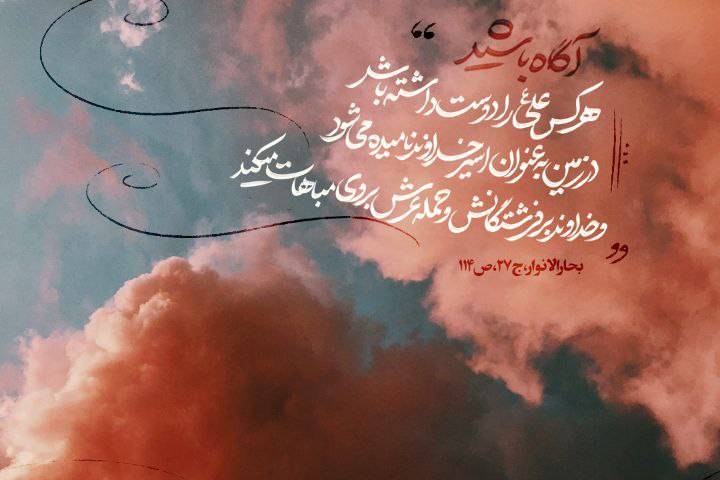 آگاه باشید
هرکس علی؏ را دوست داشته باشد
در زمین به عنوان اسیر خداوند نامیده می شود
و خداوند بر فرشتگانش و حمله عرش بر وی مباهات میکند
بحارالانوار،ج۲۷،ص۱۱۴